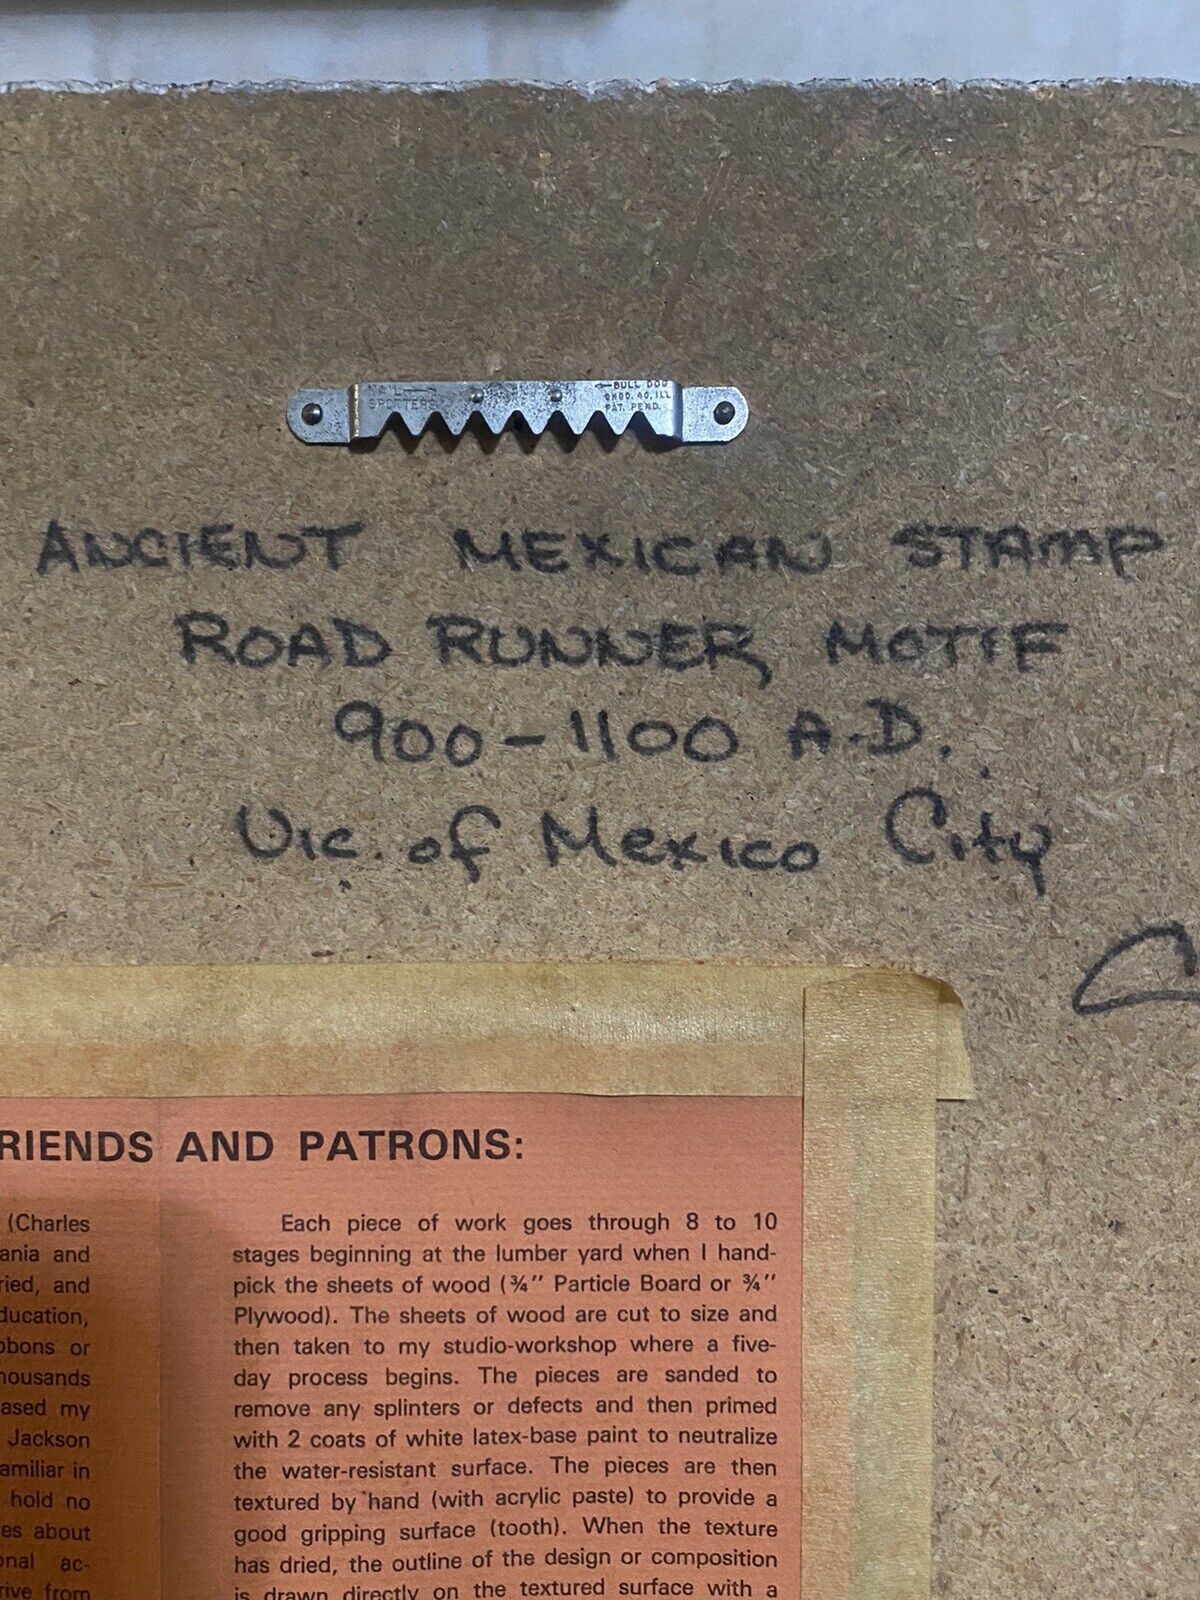 NAIL
SPOTTERS
BULL DOG
CHGO. 40, ILL
PAT. PEND.
ANCIENT MEXICAN STAMP
ROAD RUNNER MOTIF
900-1100 A.D.
Vic. of Mexico City
RIENDS AND PATRONS:
(Charles
ania and
ried, and
ducation,
bbons or
housands
ased my
Jackson
amiliar in
hold no
es about
onal ac-
rive from
Each piece of work goes through 8 to 10
stages beginning at the lumber yard when I hand-
pick the sheets of wood (¾" Particle Board or ¾"
Plywood). The sheets of wood are cut to size and
then taken to my studio-workshop where a five-
day process begins. The pieces are sanded to
remove any splinters or defects and then primed
with 2 coats of white latex-base paint to neutralize
the water-resistant surface. The pieces are then
textured by hand (with acrylic paste) to provide a
good gripping surface (tooth). When the texture
has dried, the outline of the design or composition
is drawn directly on the textured surface with a